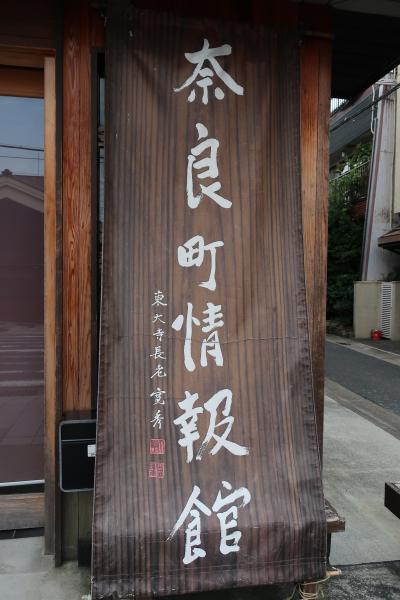 奈良町情報館
東大寺長老寛秀